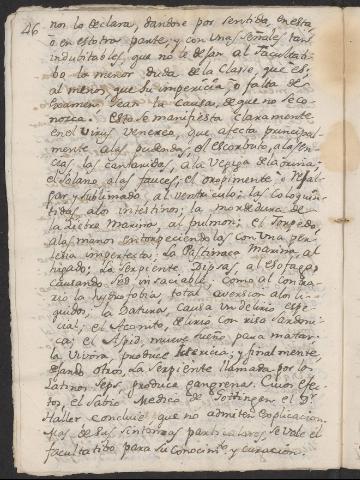 46
nos lo declara, dandose por sentida, en esta,
ô en esotra parte, y con unas señales tan
indubitables, que no le dejan al Facultati-
bo lo menor duda de la Clase, que es:
al menos que su impericia, o falta de
Examen sean la causa, de que no se co-
nozca. Esto se manifiesta claramente
en el Virus venereo, que afecta principal-
mente a las pudendas; el escorbuto, a las en-
cias, las cantaridas, a la Vegiga de la orina;
el solano, a las fauces; el oropimente o Rejal-
gar y sublimado al ventriculo; las Coloquin-
tidas, a los intestinos; la mordedura de
la Liebre Marina, al pulmon; el Torpedo,
a las manos entorpeciendolas con una per-
lesia imperfecta; la Pastinaca Marina, al
higado; la Serpiente Dipsas, al esofago
causando sed insaciable; como al contra-
rio la hydrofobia, total aversion a los li-
quidos; la Datura, causa un delirio espe-
cial; el Aconito, delirio con risa sardoni-
ca; el Aspid, mueve sueño para matar;
la Vivora, produce Ictericia; y finalmente,
dejando otros, la Serpiente llamada por los
Latinos Seps, produce gangrena. Cuios efec-
tos, el Sabio Medico de Gottingen el Dr.
Haller concluió que no admiten explicacion.
Mas de sus sintomas particulares, se vale el
facultatibo para su Conocimto. y curacion.